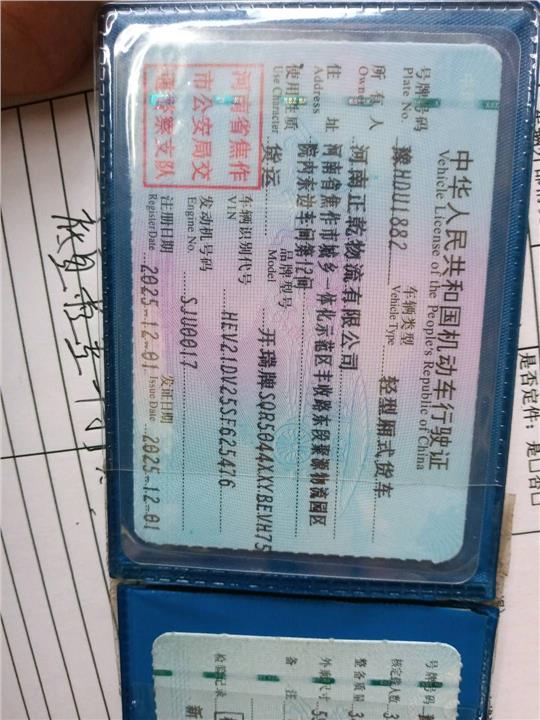 中华人民共和国机动车行驶证
Vehicle License of the People's Republic of China
号牌号码 豫HDU1882 车辆类型 轻型厢式货车
Plate No. Vehicle Type
所有人 河南正乾物流有限公司
Owner
住址 河南省焦作市城乡一体化示范区丰收路东段聚源物流园区
Address 院内东边车间第12间
使用性质 货运 品牌型号 开瑞牌SQR5044XXYBEVH75
Use Character Model
河南省焦作
市公安局交
通警察支队
车辆识别代号 HEV21DV25SF625476
VIN
发动机号码 SJU0017
Engine No.
注册日期 2025-12-01 发证日期 2025-12-01
Register Date Issue Date
号牌号码
核定载人数
整备质量
外廓尺寸
备注
检验记录
是否定件：是□否□